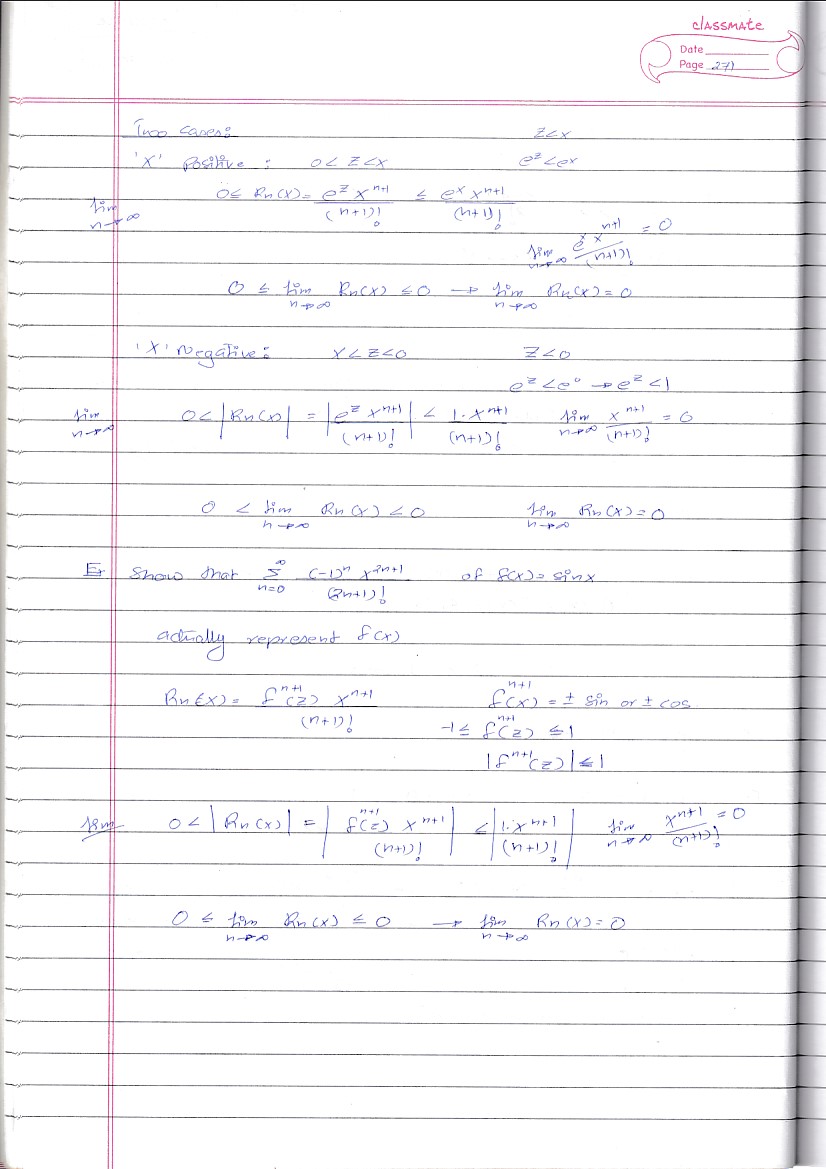 classmate
Date
Page 271
Two cases: z<x
'X' Positive : 0<z<x e^z<e^x
lim n→∞ 0≤ Rn(x) = e^z x^{n+1}/(n+1)! ≤ e^x x^{n+1}/(n+1)!
lim n→∞ e^x x^{n+1}/(n+1)! = 0
0 ≤ lim n→∞ Rn(x) ≤ 0 → lim n→∞ Rn(x) = 0
'X' Negative: x<z<0 z<0
e^z<e^0 → e^z<1
lim n→∞ 0<|Rn(x)| = |e^z x^{n+1}/(n+1)!| < 1·x^{n+1}/(n+1)! lim n→∞ x^{n+1}/(n+1)! = 0
0 < lim n→∞ Rn(x) < 0 lim n→∞ Rn(x) = 0
Ex Show that ∑_{n=0}^{∞} (-1)^n x^{2n+1}/(2n+1)! of f(x) = sinx
actually represent f(x)
Rn(x) = f^{n+1}(z) x^{n+1}/(n+1)! f^{n+1}(x) = ± sin or ± cos
-1≤ f^{n+1}(z) ≤1
|f^{n+1}(z)| ≤1
lim 0<|Rn(x)| = |f^{n+1}(z) x^{n+1}/(n+1)!| ≤ |1·x^{n+1}/(n+1)!| lim n→∞ x^{n+1}/(n+1)! = 0
0 ≤ lim n→∞ Rn(x) ≤ 0 → lim n→∞ Rn(x) = 0